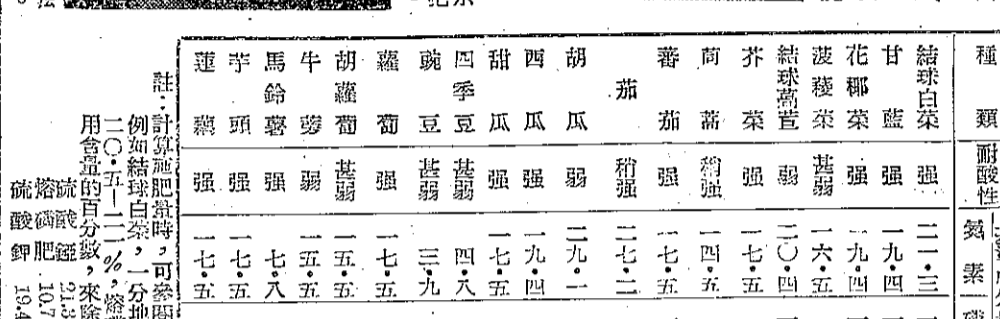 種類 耐酸性 氮素
結球白菜 强 二一·三
甘藍 强 一九·四
花椰菜 强 一九·四
菠稜菜 甚弱 一六·五
結球萵苣 弱 二〇·四
芥菜 强 一七·五
茼蒿 稍强 一四·五
蕃茄 强 一七·五
茄 稍强 二七·二
胡瓜 弱 二九·一
西瓜 强 一九·四
甜瓜 强 一七·五
四季豆 甚弱 四·八
豌豆 甚弱 三·九
蘿蔔 强 一七·五
胡蘿蔔 甚弱 一五·五
牛蒡 弱 一五·五
馬鈴薯 强 七·八
芋頭 强 一七·五
蓮藕 强 一七·五
註：計算施肥量時，可參閱
例如結球白菜，一分地
二〇·五—二一%，熔
用含量的百分數，來除
硫酸錏 21.3
熔磷肥 10.7
硫酸鉀 19.4